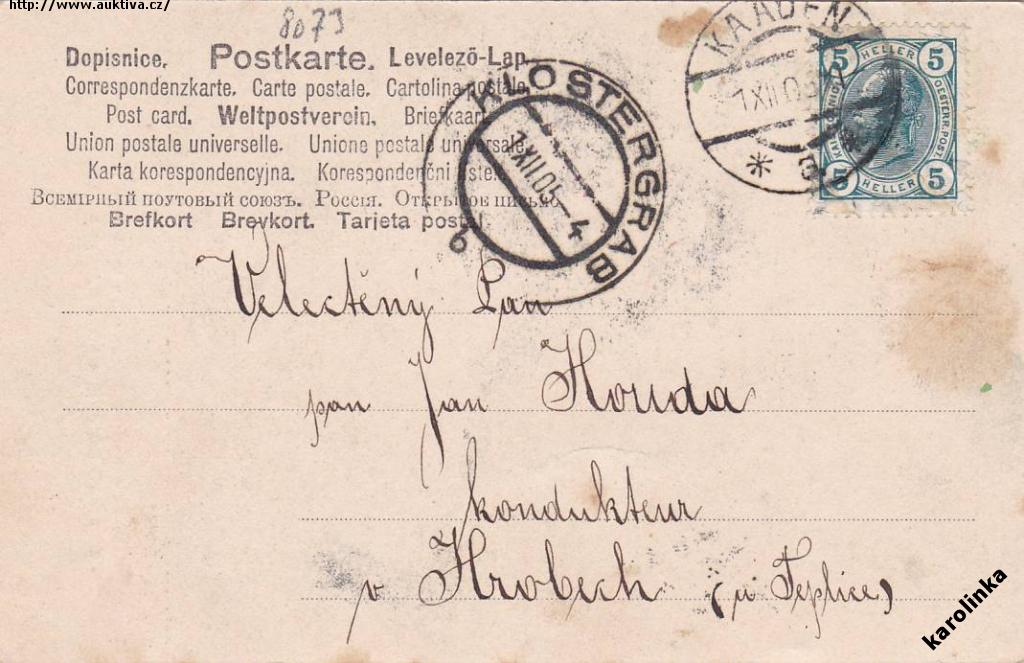 http://www.auktiva.cz/
8073
Dopisnice. Postkarte. Levelező-Lap.
Correspondenzkarte. Carte postale. Cartolina postale.
Post card. Weltpostverein. Briefkaart.
Union postale universelle. Unione postale universale.
Karta korespondencyjna. Korespondenční lístek.
Всемірный почтовый союзъ. Россія. Открытое письмо.
Brefkort. Brevkort. Tarjeta postal.
KLOSTERGRAB
1 XII 05-4
b
KAADEN
1 XII 05
5 HELLER 5
OESTERR. POST
5 HELLER 5
Velectěný Pan
pan Jan Houda
kondukteur
v Hrobech (u Teplice)
karolinka